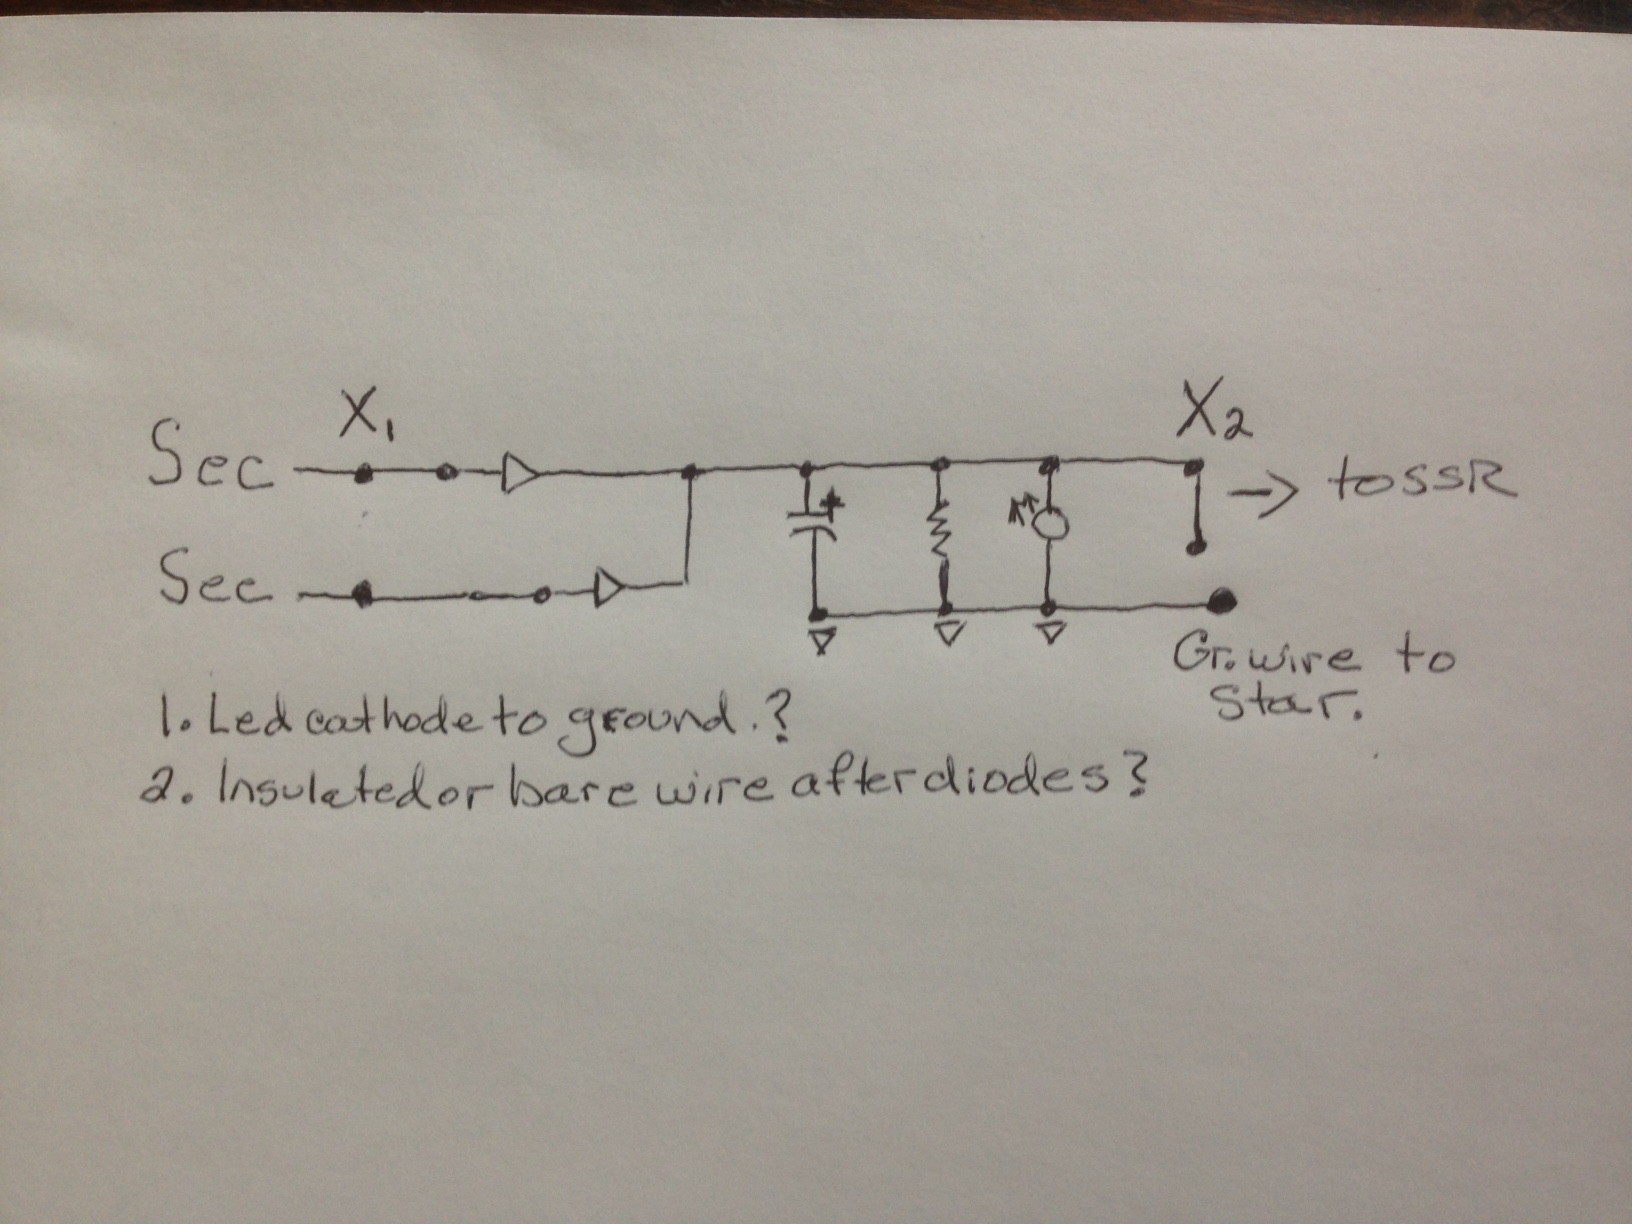 X1
X2
Sec
→ to SSR
+
Sec
Gr. wire to
Star.
1. Led cathode to ground.?
2. Insulated or bare wire after diodes?